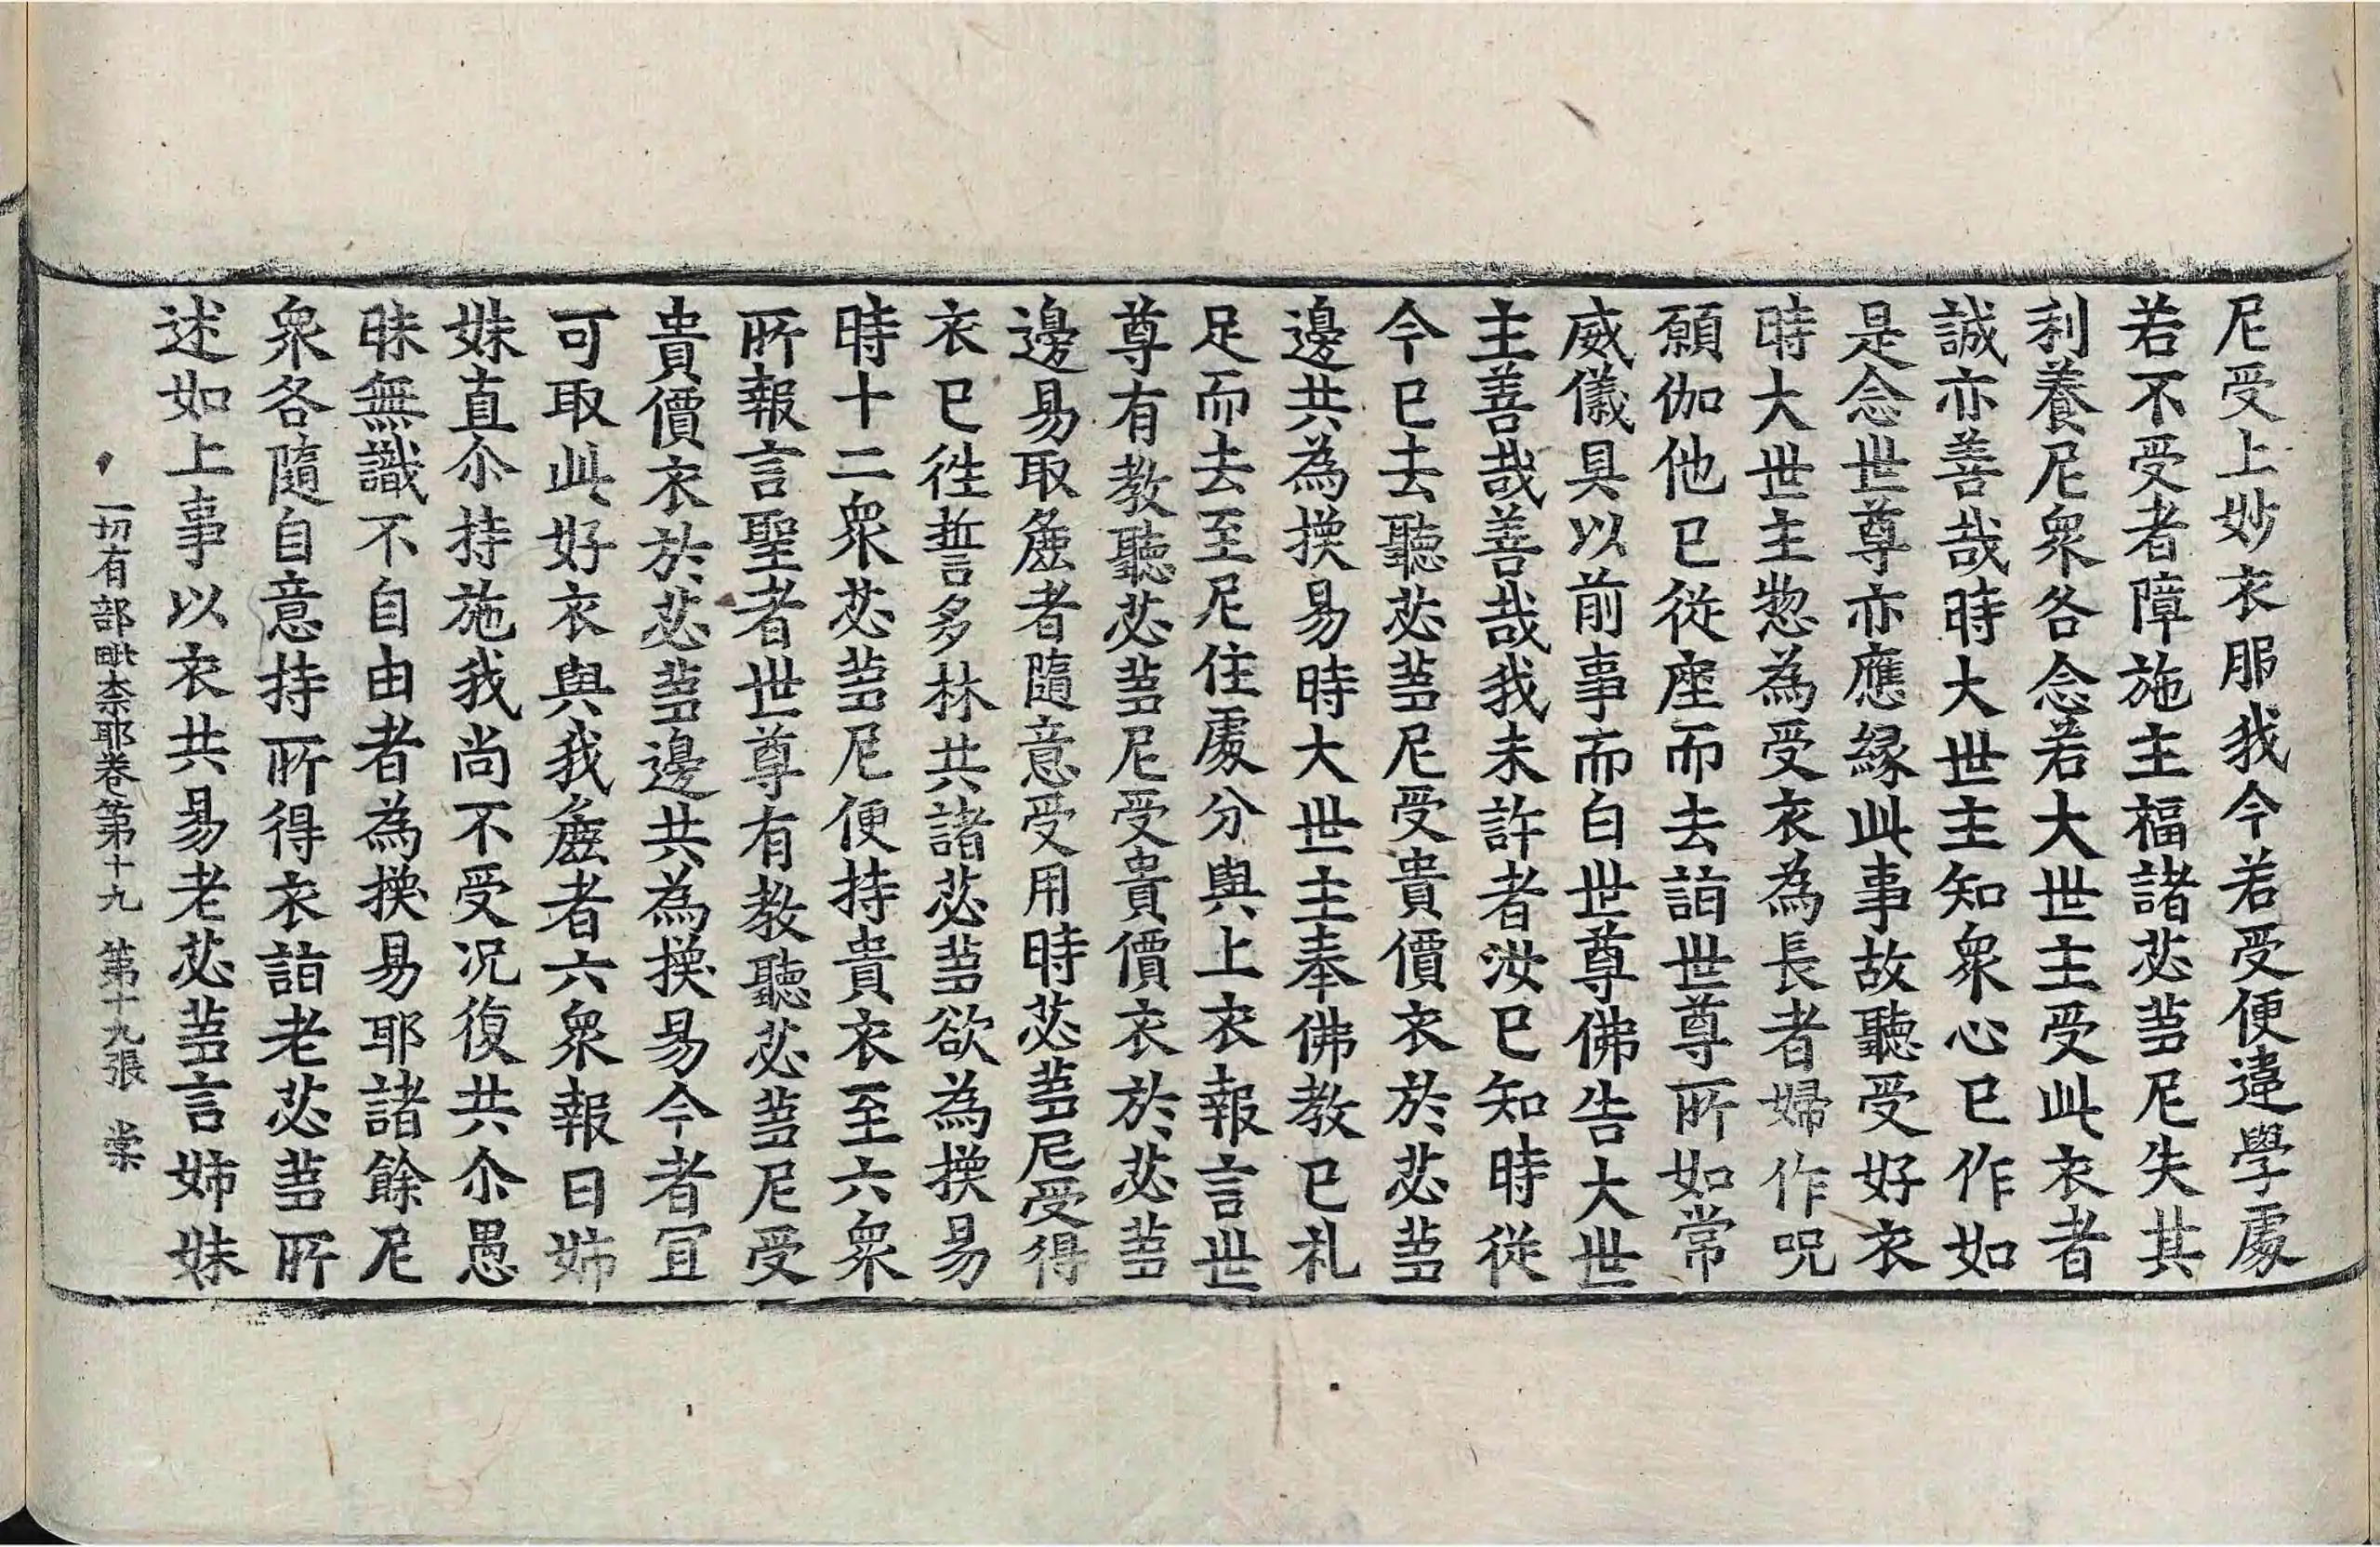 尼受上妙衣服我今若受便違學處
若不受者障施主福諸苾蒭尼失其
利養尼衆各念若大世主受此衣者
誠亦善哉時大世主知衆心已作如
是念世尊亦應緣此事故聽受好衣
時大世主惣為受衣為長者婦作呪
願伽他已從座而去詣世尊所如常
威儀具以前事而白世尊佛告大世
主善哉善哉我未許者汝已知時從
今已去聽苾蒭尼受貴價衣於苾蒭
邊共為換易時大世主奉佛教已礼
足而去至尼住處分與上衣報言世
尊有教聽苾蒭尼受貴價衣於苾蒭
邊易取麁者隨意受用時苾蒭尼受得
衣已往誓多林共諸苾蒭欲為換易
時十二衆苾蒭尼便持貴衣至六衆
所報言聖者世尊有教聽苾蒭尼受
貴價衣於苾蒭邊共為換易今者冝
可取此好衣與我麁者六衆報曰姉
妹直尒持施我尚不受況復共尒愚
昧無識不自由者為換易耶諸餘尼
衆各隨自意持所得衣詣老苾蒭所
述如上事以衣共易老苾蒭言姉妹
一切有部毗柰耶卷第十九　第十九張　棠